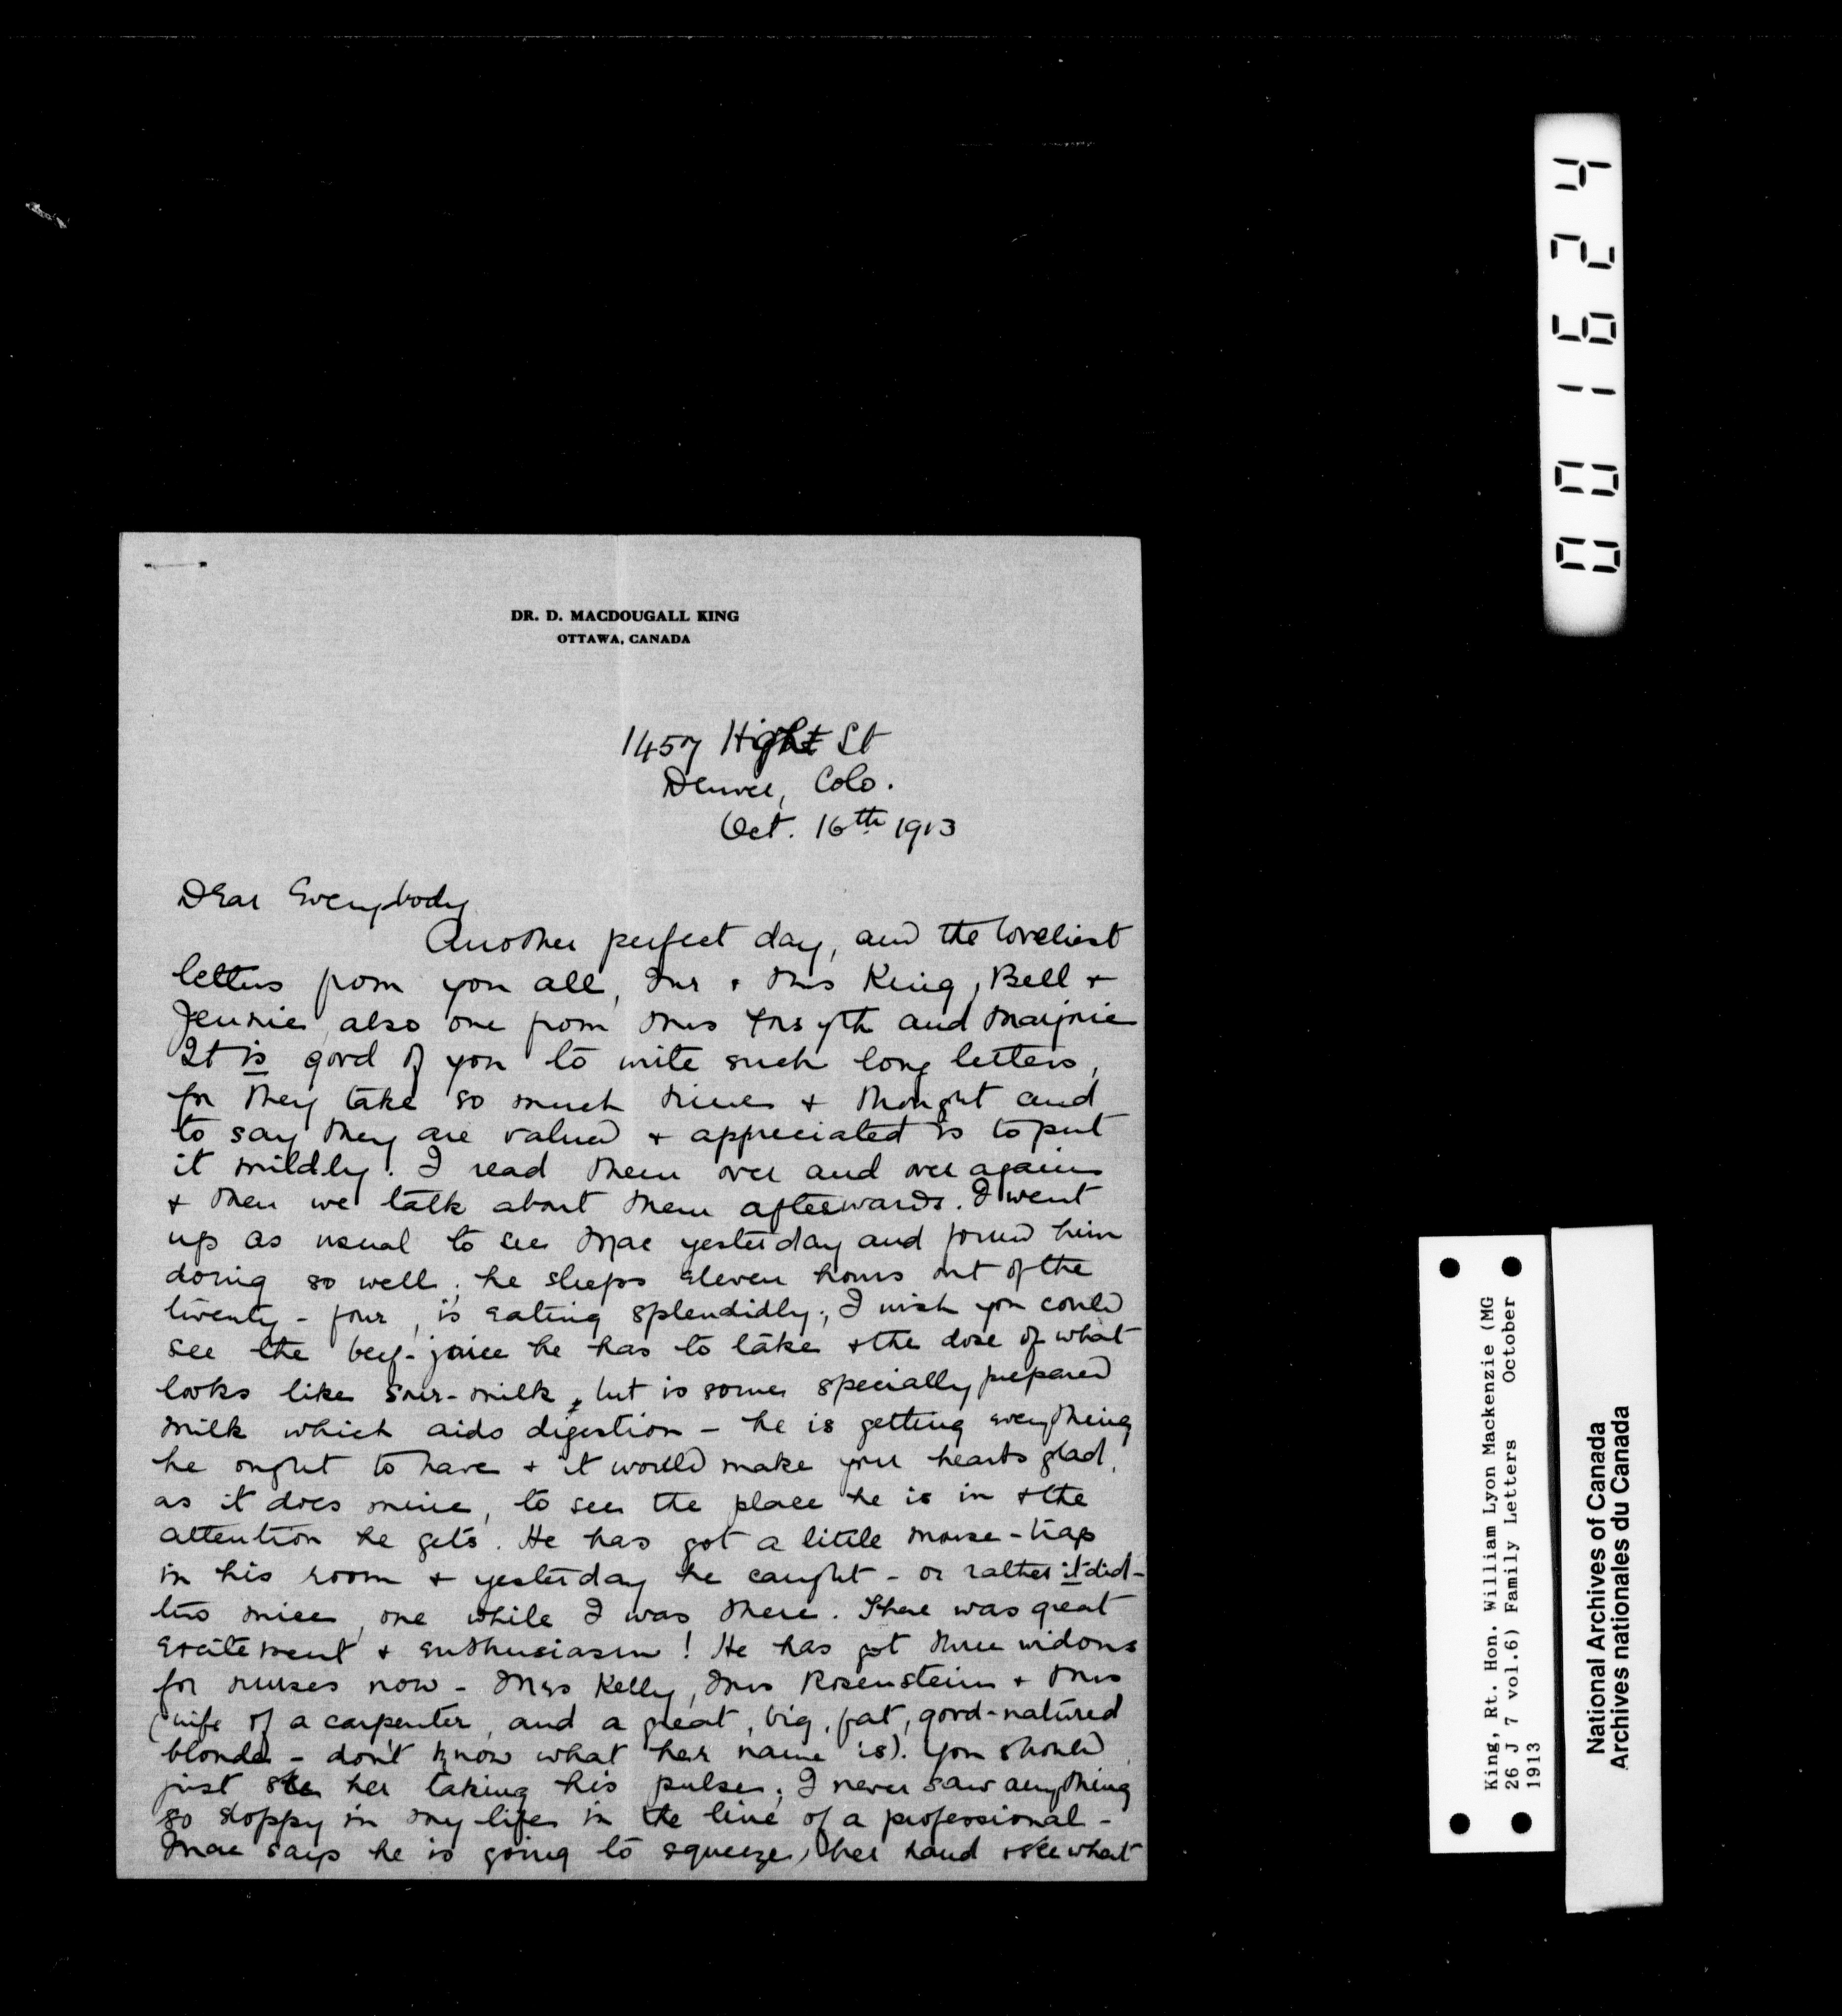 DR. D. MACDOUGALL KING
OTTAWA, CANADA
1457 High St
Denver, Colo.
Oct. 16th 1913
Dear Everybody
Another perfect day, and the loveliest
letters from you all, Mr & Mrs King, Bell &
Jennie, also one from Mrs Forsyth and Marjorie
It is good of you to write such long letters,
for they take so much time & thought and
to say they are valued & appreciated is to put
it mildly! I read them over and over again
& then we talk about them afterwards. I went
up as usual to see Mac yesterday and found him
doing so well; he sleeps eleven hours out of the
twenty-four, is eating splendidly; I wish you could
see the beef-juice he has to take & the dose of what
looks like sour-milk, but is some specially prepared
milk which aids digestion - he is getting everything
he ought to have & it would make your hearts glad,
as it does mine, to see the place he is in & the
attention he gets. He has got a little mouse-trap
in his room & yesterday he caught - or rather it did -
two mice, one while I was there. There was great
excitement & enthusiasm! He has got three widows
for nurses now - Mrs Kelly, Mrs Rosenstein & Mrs
(wife of a carpenter, and a great, big, fat, good-natured
blonde - don't know what her name is). You should
just see her taking his pulse; I never saw anything
so sloppy in my life in the line of a professional -
Mac says he is going to squeeze her hand & see what
001624
King, Rt. Hon. William Lyon Mackenzie (MG
26 J 7 vol.6) Family Letters October
1913
National Archives of Canada
Archives nationales du Canada